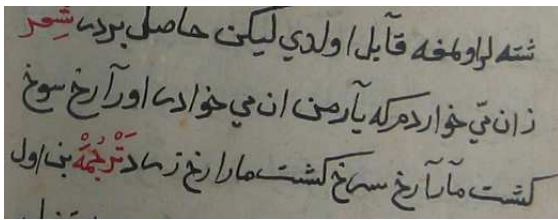 شته لر اولمغه قآبل اولدي ليكن حاصل بردر شعر
زان مي خواردم كه يار من ان مي خوادر اورا رخ سوخ
كشت مآرآ رخ سوخ كشت مارا رخ زرد ترجمه بن اول